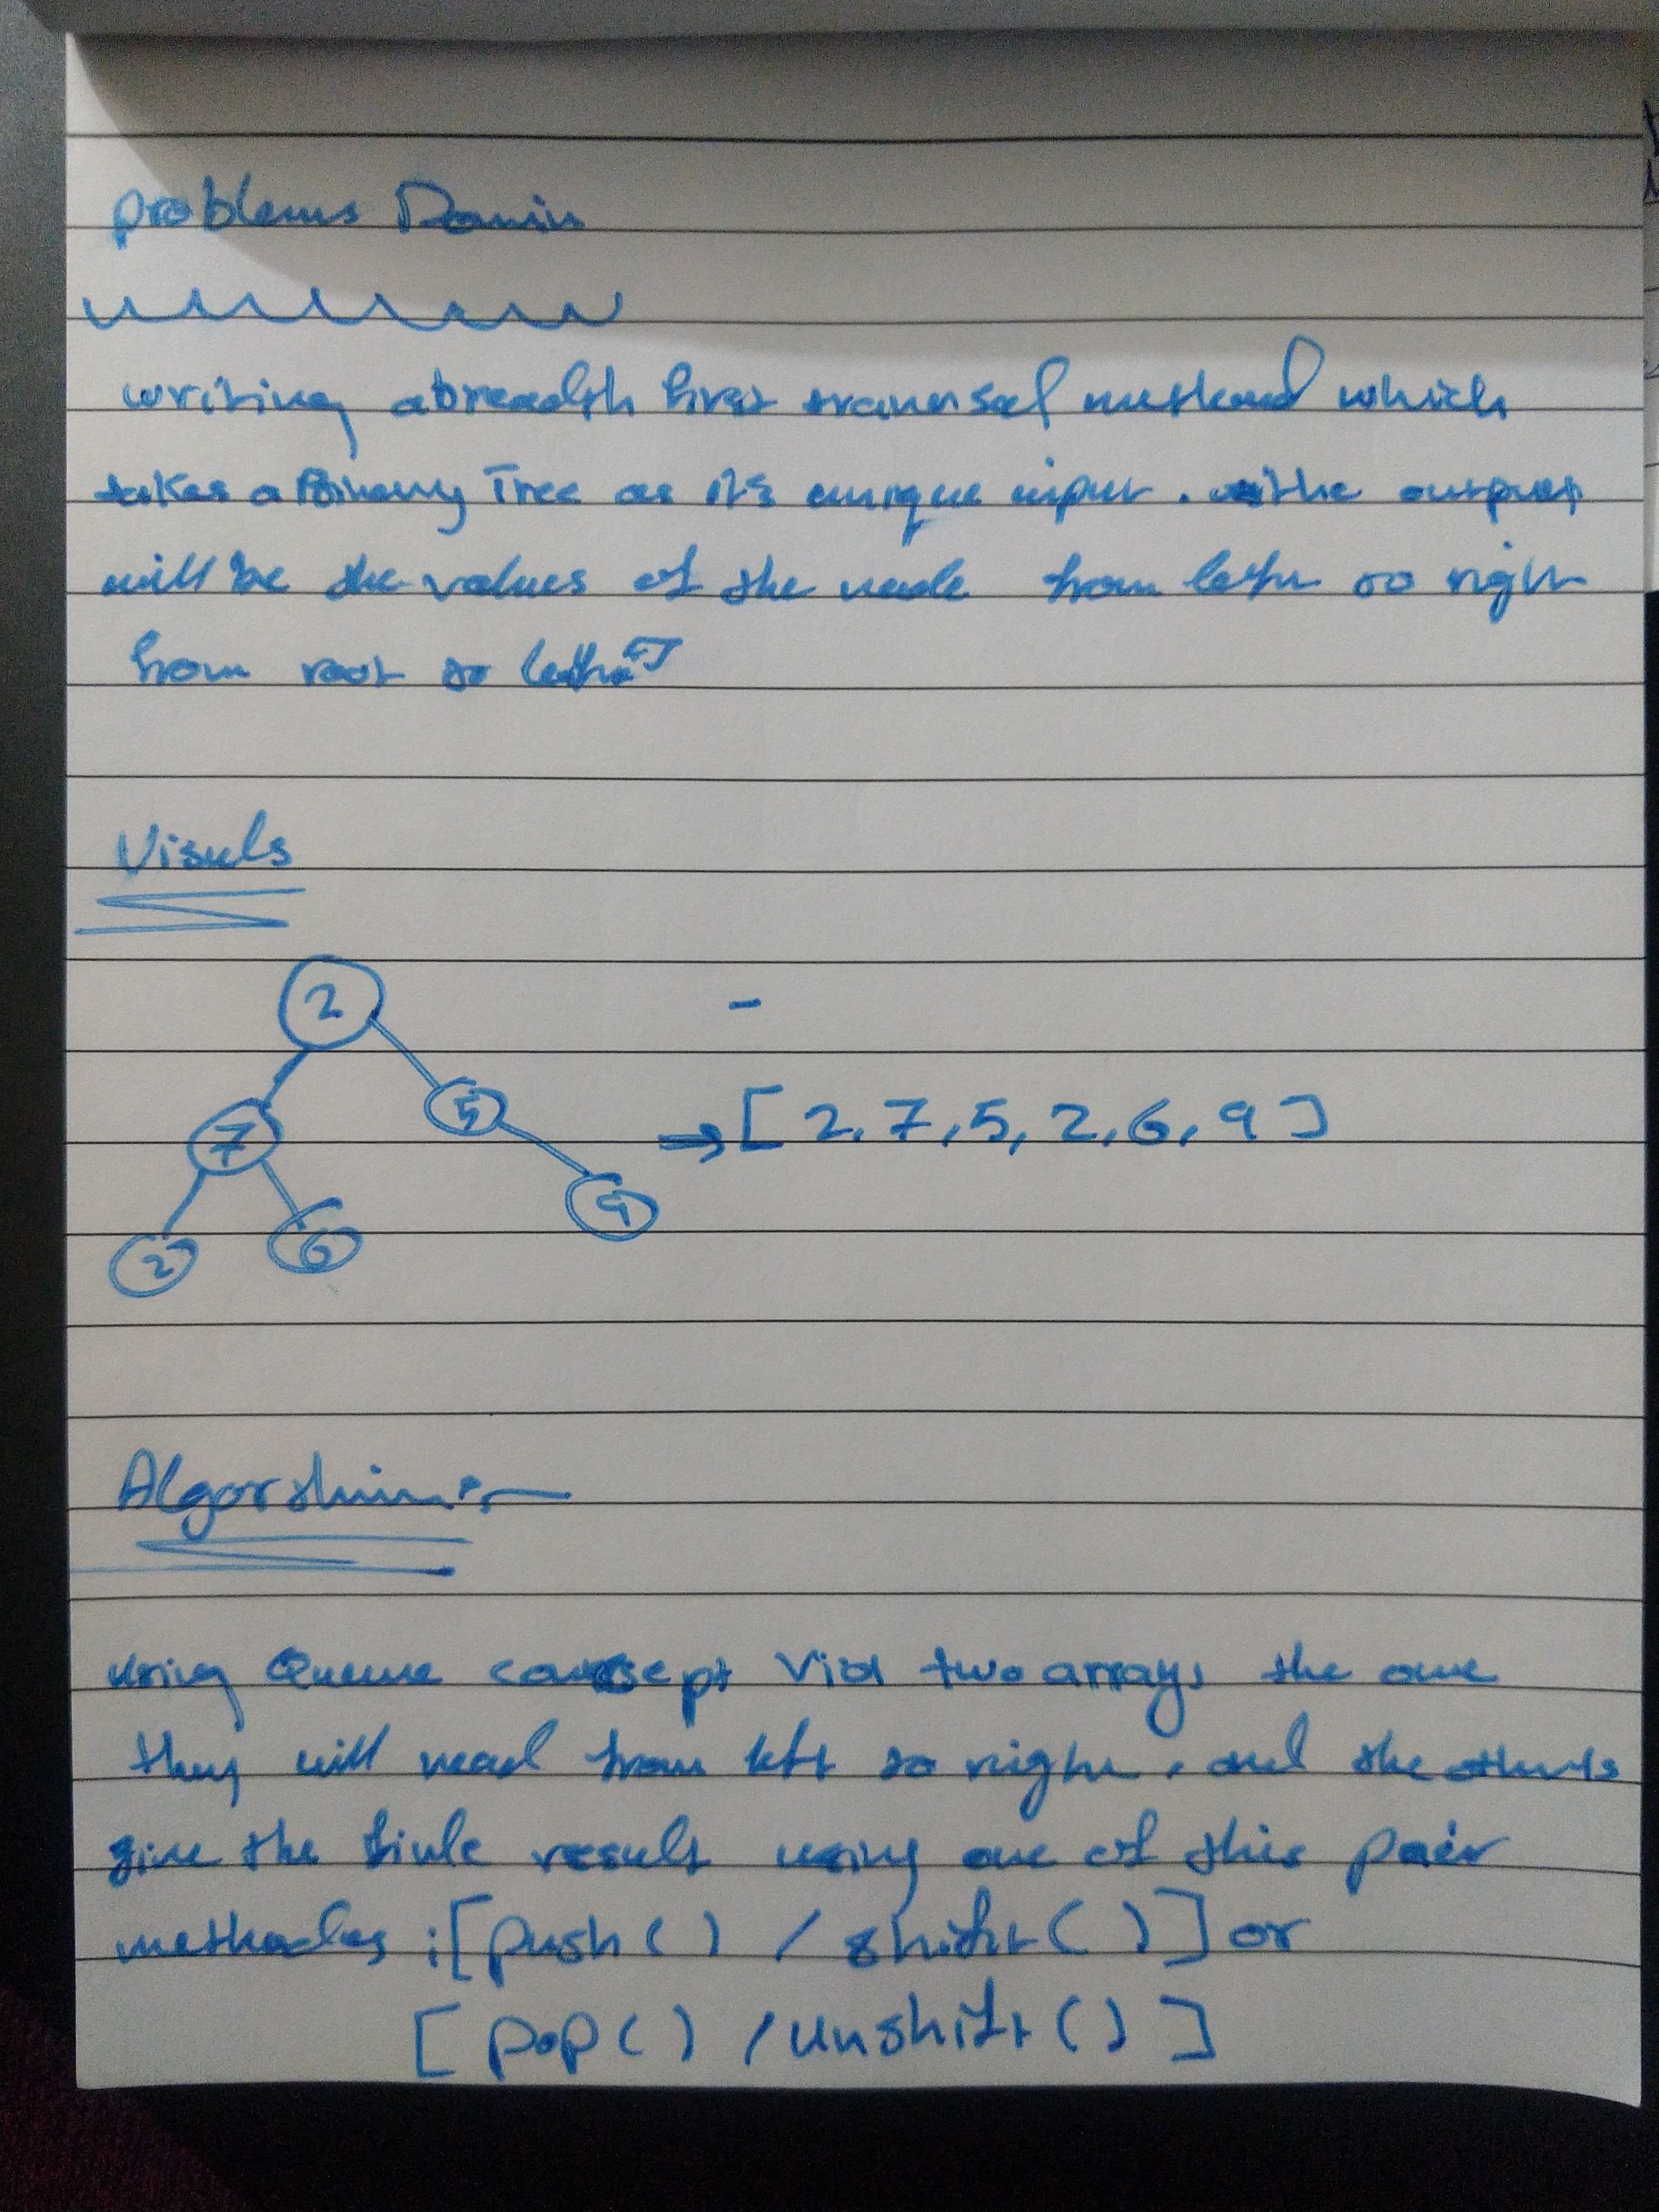 problems Domin
writing a breadth first traversal method which
takes a Binary Tree as it's unique input. the output
will be the values of the node from left to right
from root to
Visuls
2
7
5
2
6
9
→ [ 2, 7, 5, 2, 6, 9 ]
Algorithim:-
using Queue concept Via two arrays the one
they will read from left to right, and the others
give the result using one of this pair
methodes : [ push ( ) / shift ( ) ] or
[ pop ( ) / unshift ( ) ]